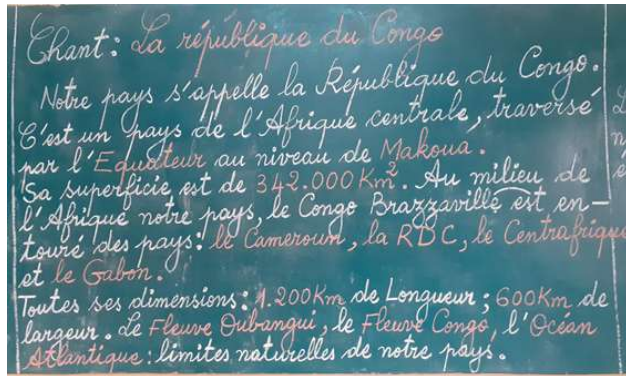 Chant: La république du Congo
Notre pays s'appelle la République du Congo.
C'est un pays de l'Afrique centrale, traversé
par l'Equateur au niveau de Makoua.
Sa superficie est de 342.000 Km². Au milieu de
l'Afrique notre pays, le Congo Brazzaville est en-
touré des pays: le Cameroun, la RDC, le Centrafrique
et le Gabon.
Toutes ses dimensions: 1.200Km de Longueur; 600Km de
largeur. Le Fleuve Oubangui, le Fleuve Congo, l'Océan
Atlantique: limites naturelles de notre pays.